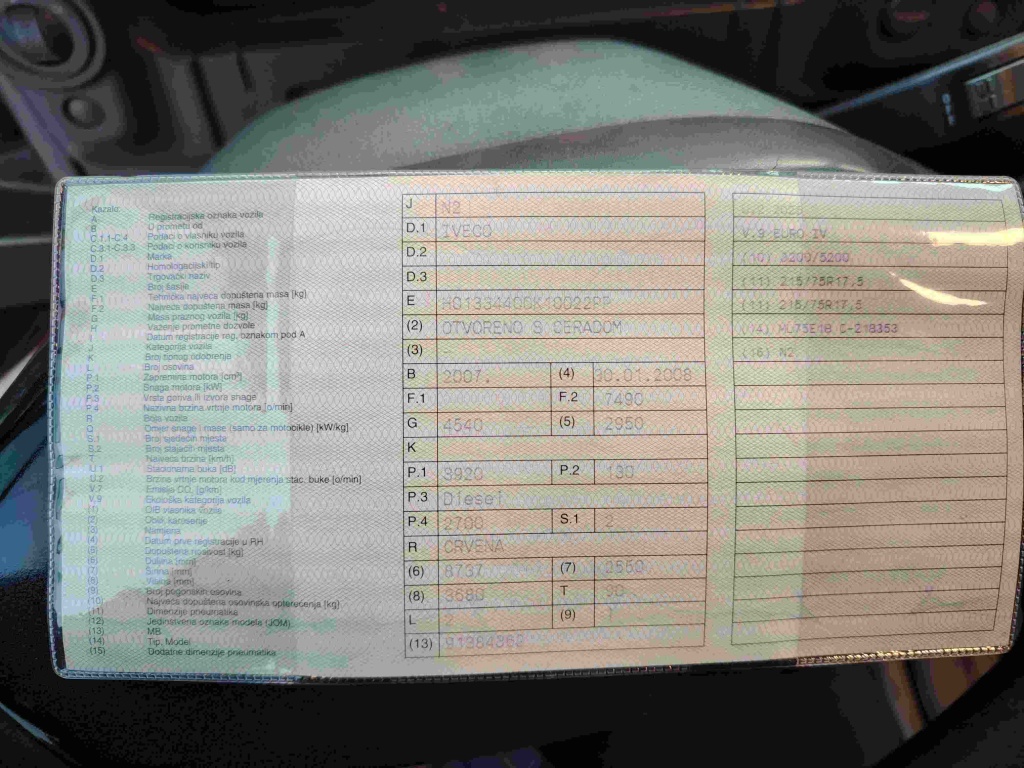 Kazalo:
A Registracijska oznaka vozila
B U prometu od
C.1.1-C.4 Podaci o vlasniku vozila
C.3.1-C.3.3 Podaci o korisniku vozila
D.1 Marka
D.2 Homologacijski tip
D.3 Trgovački naziv
E Broj šasije
F.1 Tehnička najveća dopuštena masa [kg]
F.2 Najveća dopuštena masa [kg]
G Masa praznog vozila [kg]
H Važenje prometne dozvole
I Datum registracije reg. oznakom pod A
J Kategorija vozila
K Broj tipnog odobrenja
L Broj osovina
P.1 Zapremina motora [cm³]
P.2 Snaga motora [kW]
P.3 Vrsta goriva ili izvora snage
P.4 Nazivna brzina vrtnje motora [o/min]
R Boja vozila
Q Omjer snage i mase (samo za motocikle) [kW/kg]
S.1 Broj sjedećih mjesta
S.2 Broj stajaćih mjesta
T Najveća brzina [km/h]
U.1 Stacionarna buka [dB]
U.2 Brzina vrtnje motora kod mjerenja stac. buke [o/min]
V.7 Emisija CO₂ [g/km]
V.9 Ekološka kategorija vozila
(1) OIB vlasnika vozila
(2) Oblik karoserije
(3) Namjena
(4) Datum prve registracije u RH
(5) Dopuštena nosivost [kg]
(6) Duljina [mm]
(7) Širina [mm]
(8) Visina [mm]
(9) Broj pogonskih osovina
(10) Najveća dopuštena osovinska opterećenja [kg]
(11) Dimenzije pneumatika
(12) Jedinstvena oznaka modela (JOM)
(13) MB
(14) Tip, Model
(15) Dodatne dimenzije pneumatika
J N2
D.1 IVECO
D.2
D.3
E
(2) OTVORENO S CERADOM
(3) -
B 2007. (4) 30.01.2008
F.1 F.2 7490
G 4540 (5) 2950
K
P.1 3920 P.2 130
P.3 Diesel
P.4 2700 S.1 2
R CRVENA
(6) 8737 (7) 2550
(8) 3680 T 90
L 2 (9) 1
(13)
V.9 EURO IV
(10) 3200/5200
(11) 215/75R17,5
(11) 215/75R17,5
(14) ML75E18
(16) N2